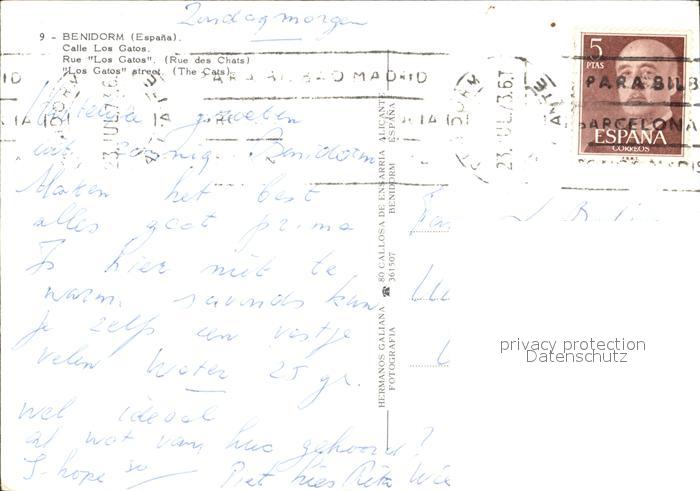 Zondagmorgen
9 - BENIDORM (España).
Calle Los Gatos.
Rue "Los Gatos". (Rue des Chats)
"Los Gatos" street. (The Cats)
PARA BILBAO MADRID
23. JUL. 73.
groeten
uit zonnig Benidorm
Maken het best
alles gaat prima
Is hier niet te
warm, s'avonds kun
je zelfs een vestje
velen Water 25 gr.
wel ideaal
al wat van huis gehoord?
I hope so Piet Kees Rita
HERMANOS GALIANA ☎ 80 CALLOSA DE ENSARRIA ALICANTE
FOTOGRAFIA 361507 BENIDORM ESPAÑA
5
PTAS
PARA BILB
BARCELONA
ESPAÑA
CORREOS
privacy protection
Datenschutz